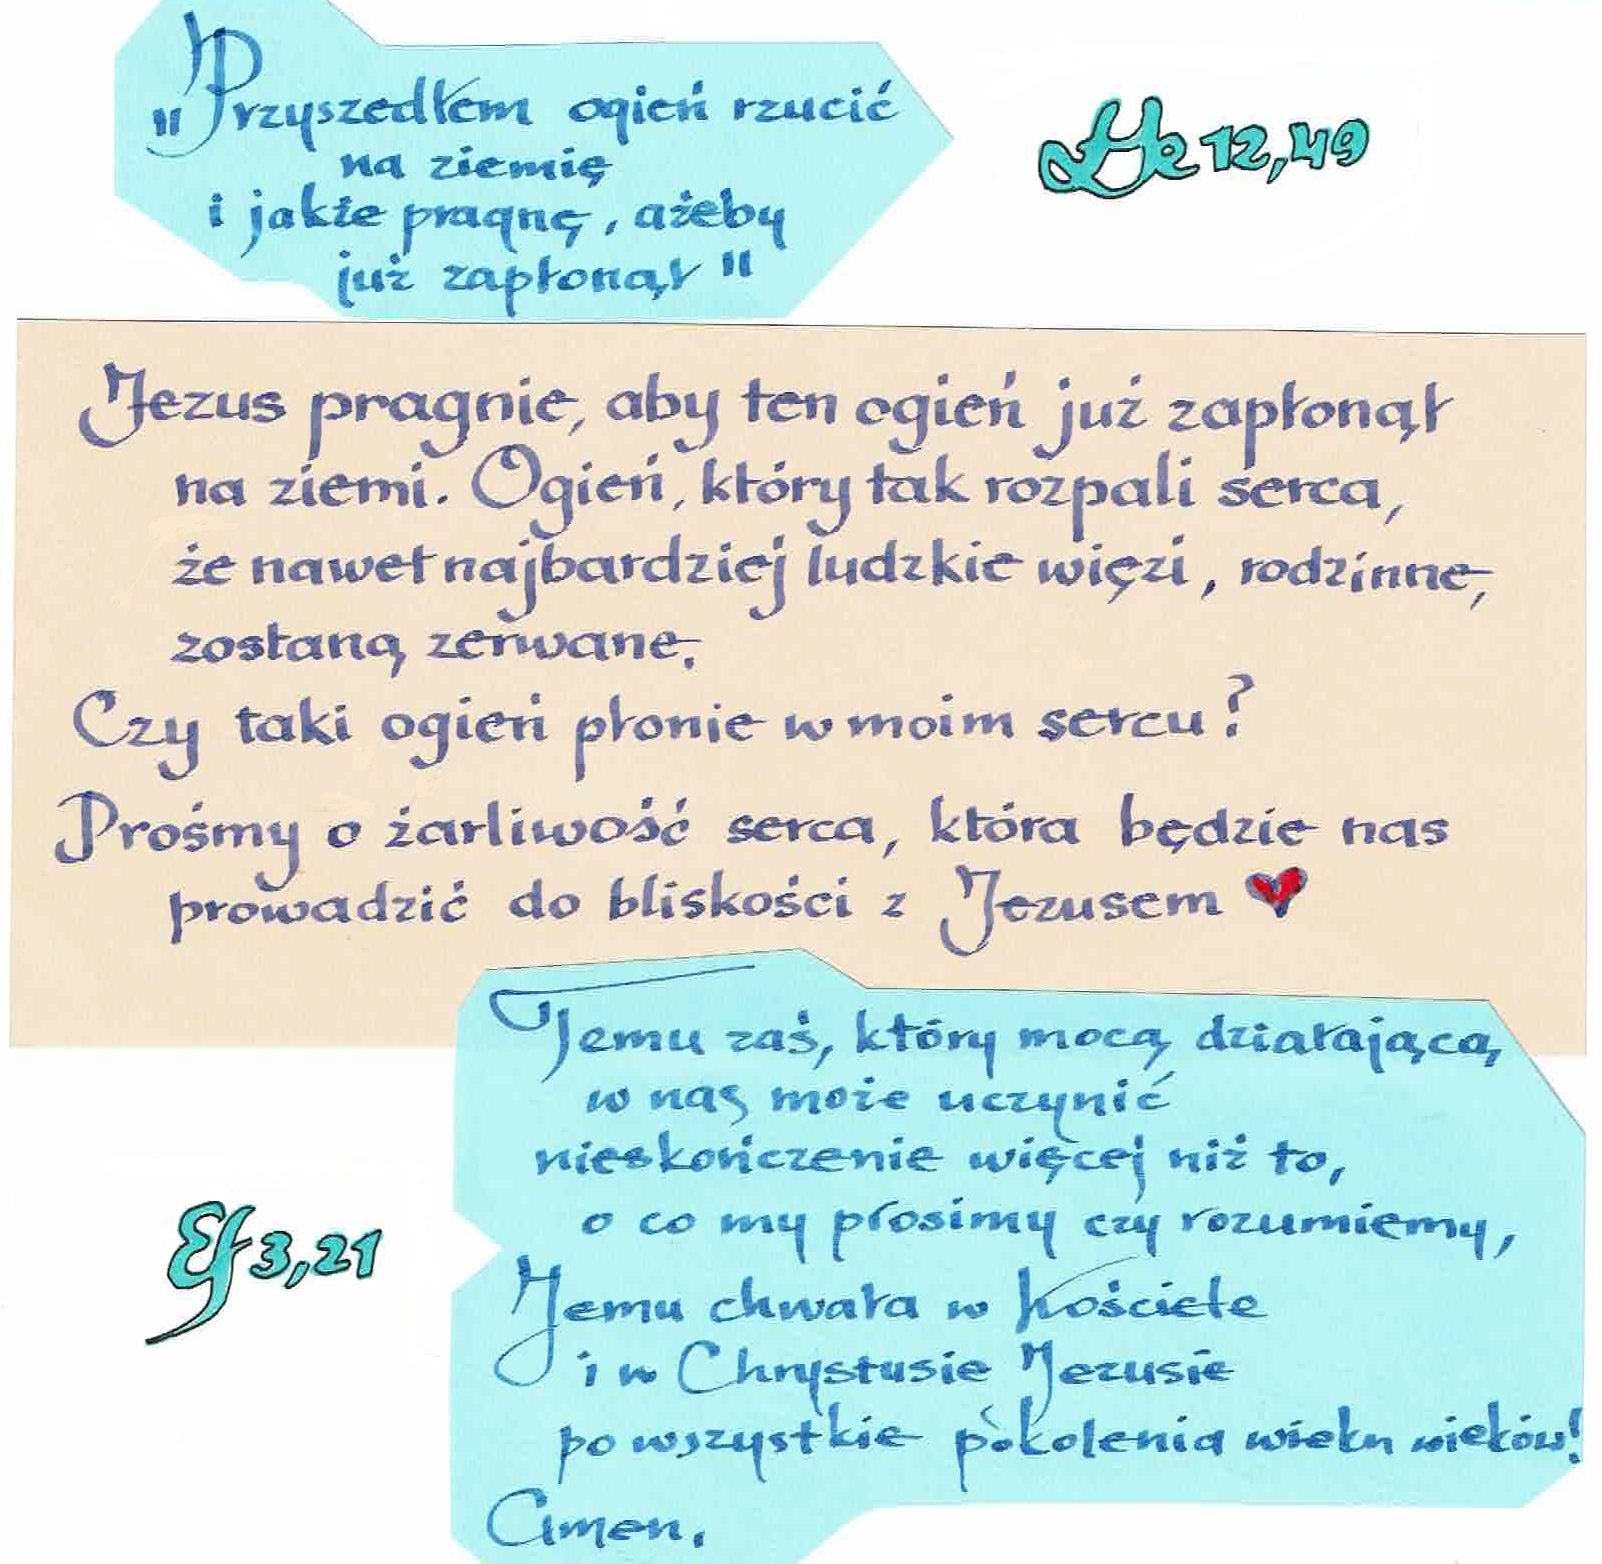 "Przyszedłem ogień rzucić
na ziemię
i jakże pragnę, ażeby
już zapłonął"
Łk 12,49
Jezus pragnie, aby ten ogień już zapłonął
na ziemi. Ogień, który tak rozpali serca,
że nawet najbardziej ludzkie więzi, rodzinne,
zostaną zerwane.
Czy taki ogień płonie w moim sercu?
Prośmy o żarliwość serca, która będzie nas
prowadzić do bliskości z Jezusem ♥
Temu zaś, który mocą działającą
w nas może uczynić
nieskończenie więcej niż to,
o co my prosimy czy rozumiemy,
Jemu chwała w Kościele
i w Chrystusie Jezusie
po wszystkie pokolenia wieku wieków!
Amen.
Ef 3,21